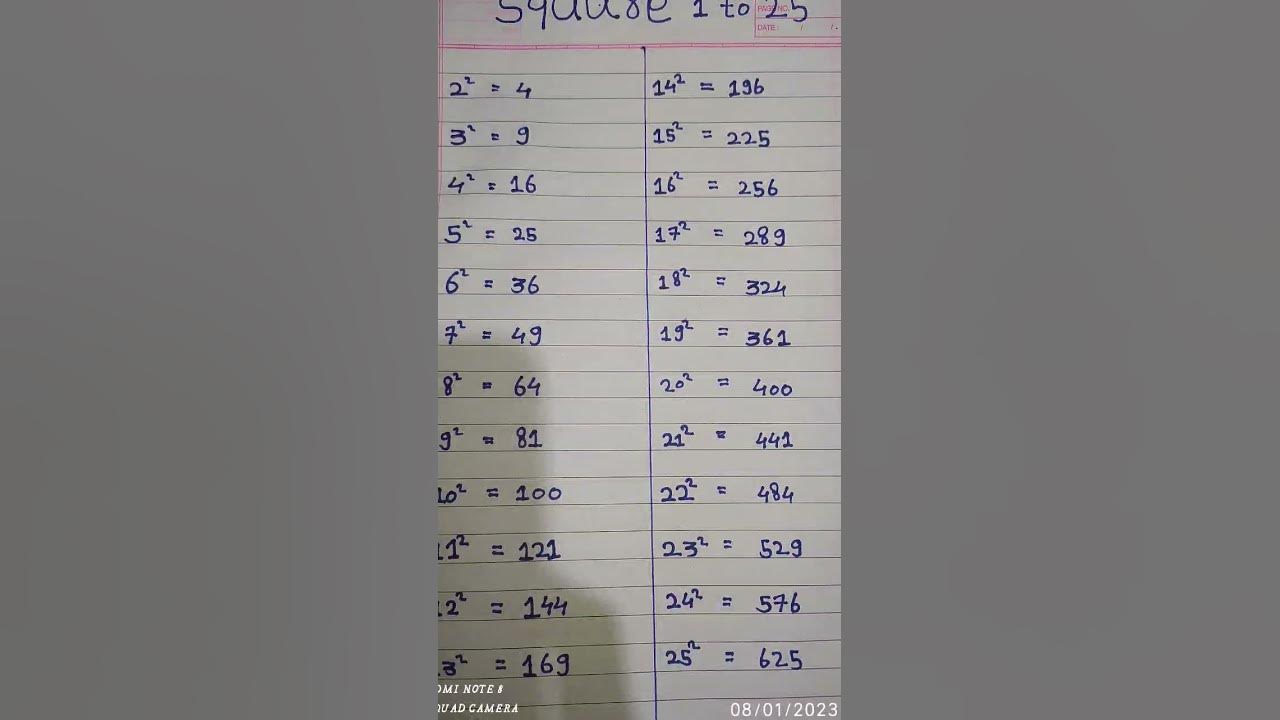 Square 1 to 25
PAGE NO.
DATE: / /
2² = 4
3² = 9
4² = 16
5² = 25
6² = 36
7² = 49
8² = 64
9² = 81
10² = 100
11² = 121
12² = 144
13² = 169
14² = 196
15² = 225
16² = 256
17² = 289
18² = 324
19² = 361
20² = 400
21² = 441
22² = 484
23² = 529
24² = 576
25² = 625
OMI NOTE 8
QUAD CAMERA
08/01/2023